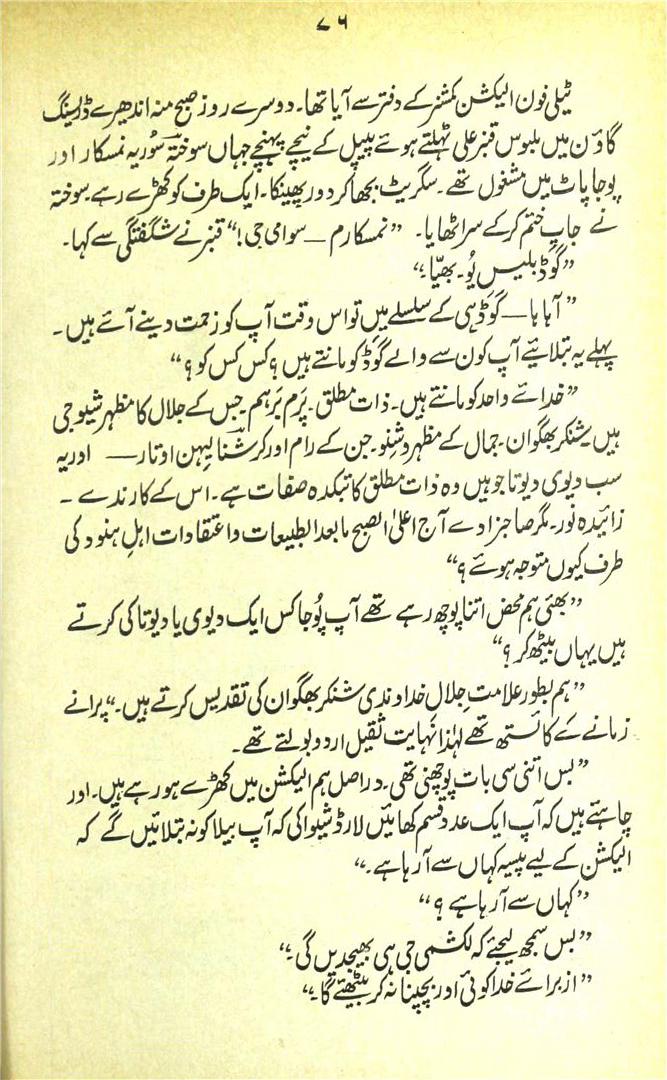 ۷۶
ٹیلی فون الیکشن کمشنر کے دفتر سے آیا تھا۔ دوسرے روز صبح منہ اندھیرے ڈریسنگ
گاؤن میں ملبوس قنبر علی ٹہلتے ہوئے پیپل کے نیچے پہنچے جہاں سوختہؔ سُوریہ نمسکار اور
پوجا پاٹ میں مشغول تھے۔ سگریٹ بجھا کر دور پھینکا۔ ایک طرف کو کھڑے رہے۔ سوختہ
نے جاپ ختم کر کے سر اٹھایا۔ ”نمسکارم — سوامی جی!“ قنبر نے شگفتگی سے کہا۔
”گوڈ بلیس یُو۔ بھیّا۔“
”آہاہا — گوڈ ہی کے سلسلے میں تو اس وقت آپ کو زحمت دینے آئے ہیں۔
پہلے یہ بتلائیے آپ کون سے والے گوڈ کو مانتے ہیں؟ کس کس کو؟“
”خدائے واحد کو مانتے ہیں۔ ذات مطلق۔ پَرم بَرہم۔ جس کے جلال کا مظہر شیو جی
ہیں۔ شنکر بھگوان۔ جمال کے مظہر وِشنو۔ جن کے رام اور کرشنا لیہن اوتار — اور یہ
سب دیوی دیوتا جو ہیں وہ ذات مطلق کا تبکدہ صفات ہے۔ اس کے کارندے۔
زائیدہ نور۔ مگر صاحبزادے آج اعلیٰ الصبح مابعد الطبیعات و اعتقادات اہلِ ہنود کی
طرف کیوں متوجہ ہوئے؟“
”بھئی ہم محض اتنا پوچھ رہے تھے آپ پُوجا کس ایک دیوی یا دیوتا کی کرتے
ہیں یہاں بیٹھ کر؟“
”ہم بطور علامتِ جلال خداوندی شنکر بھگوان کی تقدیس کرتے ہیں۔“ پرانے
زمانے کے کائستھ تھے لہٰذا نہایت ثقیل اردو بولتے تھے۔
”بس اتنی سی بات پوچھنی تھی۔ دراصل ہم الیکشن میں کھڑے ہو رہے ہیں۔ اور
چاہتے ہیں کہ آپ ایک عدد قسم کھائیں لارڈ شیوا کی کہ آپ بیلا کو نہ بتلائیں گے کہ
الیکشن کے لیے پیسہ کہاں سے آرہا ہے۔“
”کہاں سے آرہا ہے؟“
”بس سمجھ لیجئے کہ لکشمی جی ہی بھیجدیں گی۔“
”از برائے خدا کوئی اور بچپنا نہ کر بیٹھئے گا۔“